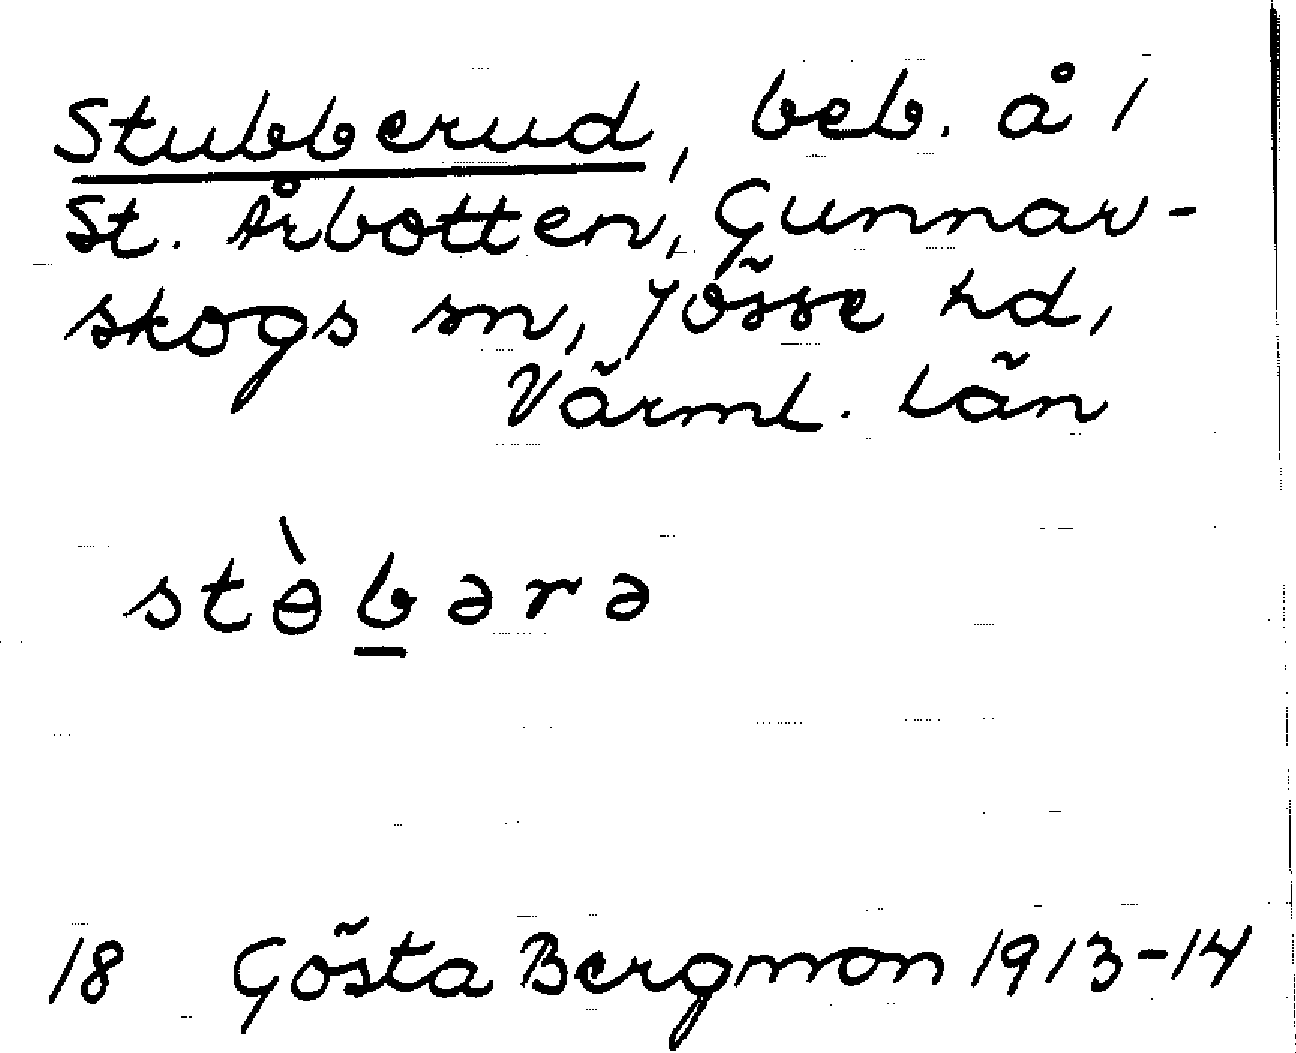 Stubberud, beb. å 1
St. Årbotten, Gunnar-
skogs sn, Jösse hd,
Värml. län
stɵ̀b̲ərə
18 Gösta Bergman 1913-14